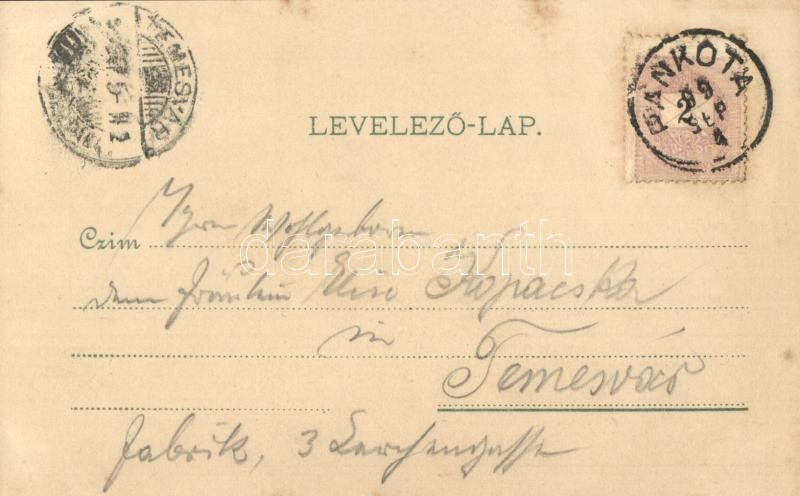 TEMESVÁR
PANKOTA
99
SEP
4
2
LEVELEZŐ-LAP.
Czim Ihrer Wohlgeboren
dem Fräulein Elise Kopacska
in
Temesvár
Fabrik, 3 Lerchengasse
darabanth.com